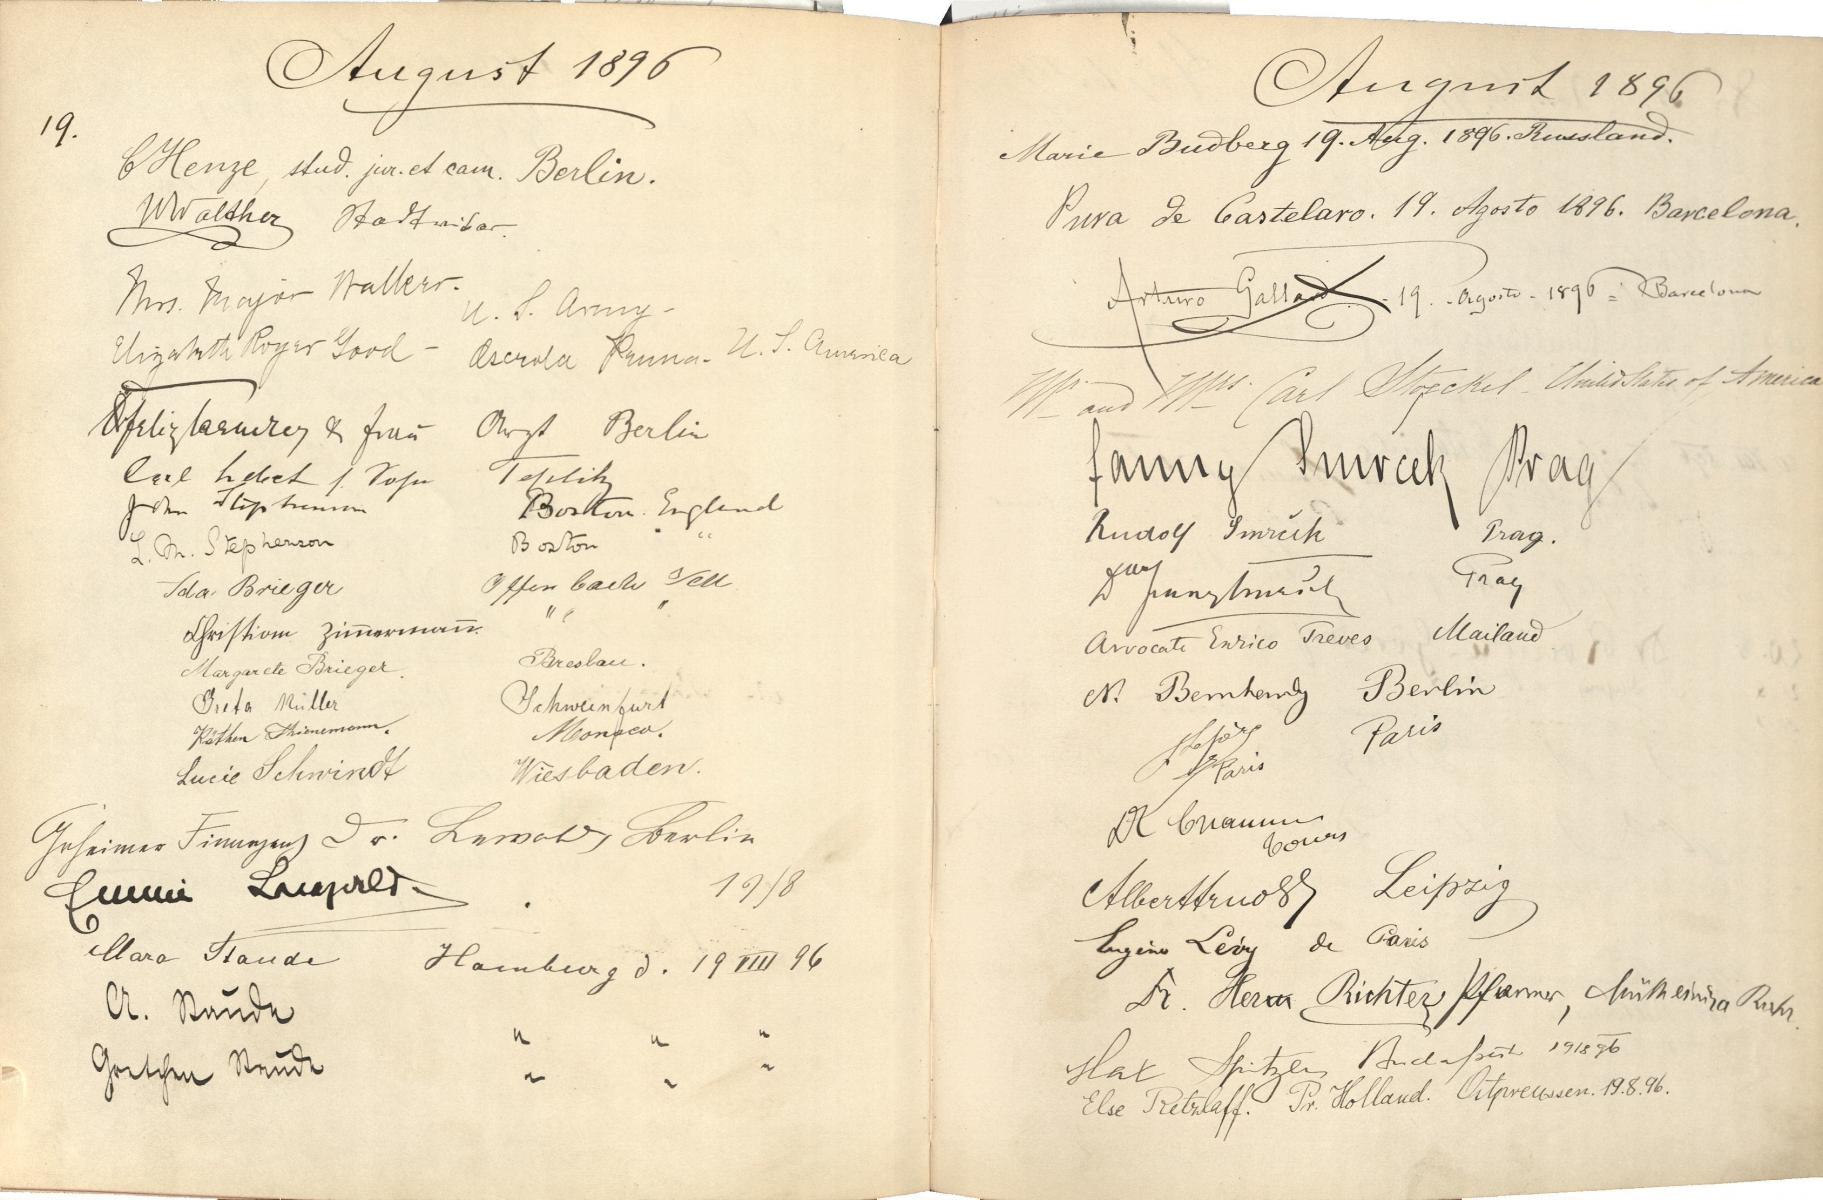 August 1896
19.
C Henze, stud. jur. et cam. Berlin.
W Walther Stadtvikar.
Mrs. Major Walker. U. S. Army -
Elizabeth Royer Good - Osceola Penna. U. S. America
& Frau Arzt Berlin
Carl Teplitz
John Stephenson Boston England
L. M. Stephenson Boston " "
Ida Brieger Offenbach
Christian Zimmermann " "
Margarete Brieger. Breslau.
Greta Müller Schweinfurt
Käthen Thienemann. Monaco.
Lucie Schwindt Wiesbaden.
Geheimer Dr. Lewald, Berlin
Emmi Leopold 19/8
Clara Staude Hamburg d. 19 VIII 96
A. Staude " " "
Gretchen Staude " " "
August 1896
Marie Budberg 19. Aug. 1896. Russland.
Pura de Castelaro. 19. Agosto 1896. Barcelona.
Arturo Gallard - 19. - Agosto - 1896 = Barcelona
Mr. and Mrs. Carl Stoeckel - United States of America
Fanny Smrček Prag
Rudolf Smrček Prag.
Prag
Avvocato Enrico Treves Mailand
N. Bernhardy Berlin
Paris
Paris
Tours
Albert Arnold Leipzig
Eugène Lévy de Paris
Dr. Herm Richter, Pfarrer, Mülheim a Ruhr.
Max Spitzer Budapest 19/8 96
Else Retzlaff. Pr. Holland. Ostpreussen. 19.8.96.